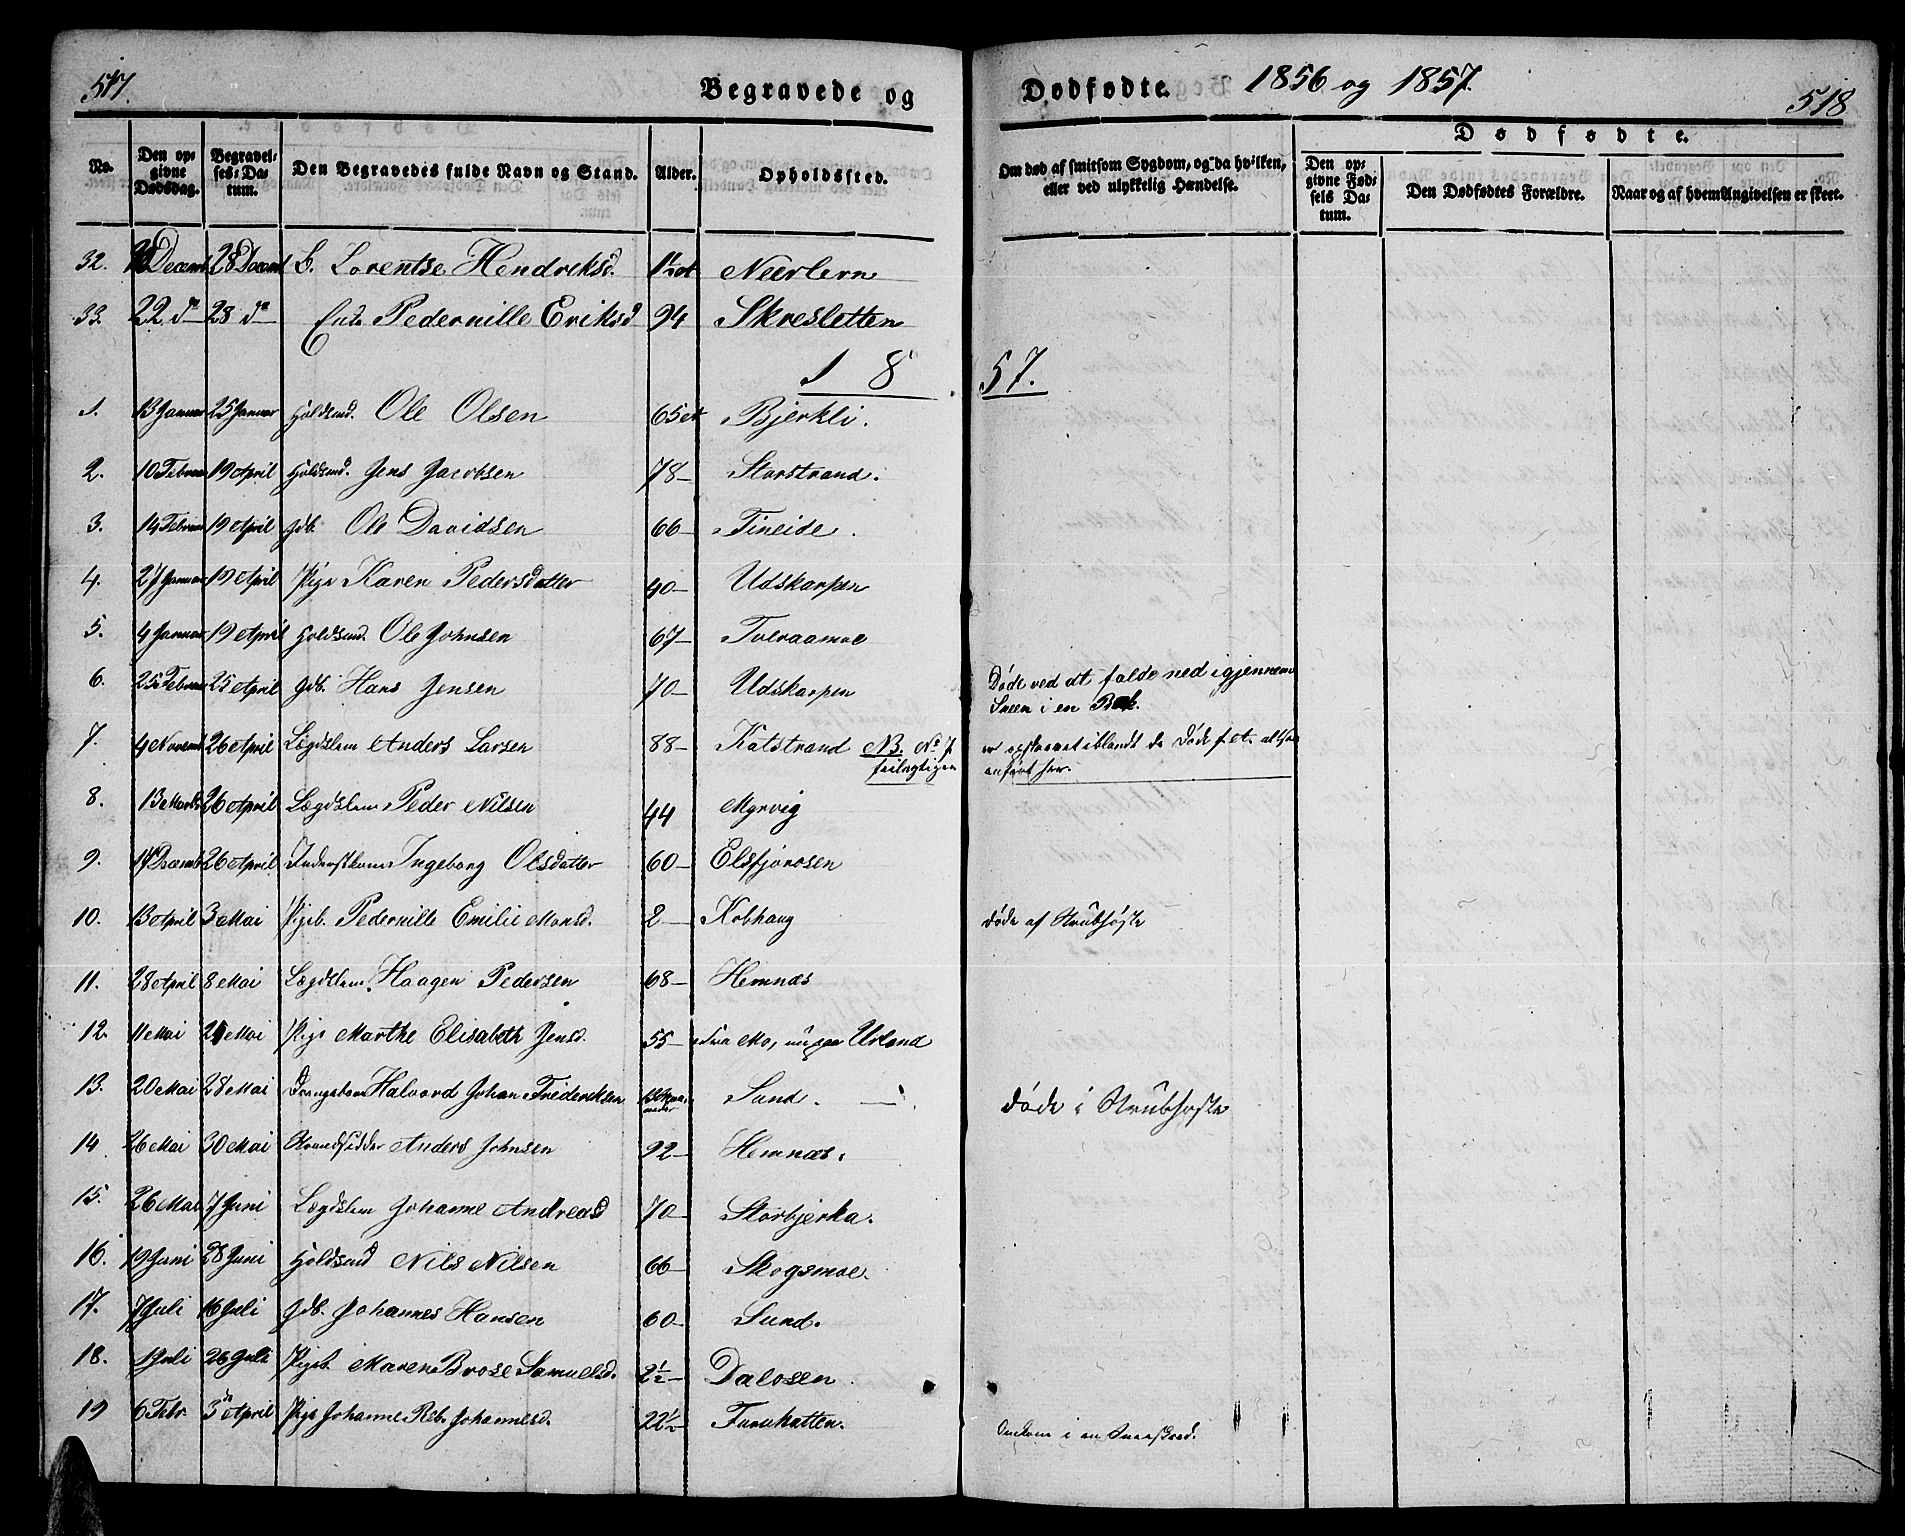 517.
Begravede og
Dødfødte. 1856 og 1857.
518
No.
Den opgivne Dødsdag.
Begravelses-Datum.
Den Begravedes fulde Navn og Stand.
Alder.
Opholdssted.
Om død af smitsom Sygdom, og da hvilken, eller ved ulykkelig Hændelse.
Dødfødte.
Den opgivne Fødsels Datum.
Den Dødfødtes Forældre.
Naar og af hvem Angivelsen er skeet.
32. Decemb 28 Decemb Lorentse Hendriksd. 1½ Neerlern
33. 22 do 28 do Enke Pedernille Eriksd 94 Skresletten
1857.
1. 13 Januar 25 Januar Holdsmd. Ole Olsen 65 Bjerkli.
2. 10 Februar 19 April Holdsmd. Jens Jacobsen 78- Storstrand.
3. 14 Februar 19 April Gdb. Ole Davidsen 66- Fineide.
4. 27 Januar 19 April Pige Karen Pedersdatter 40- Udskarpen
5. 4 Januar 19 April Holdsmd. Ole Johnsen 67- Tveraamoe
6. 25 Februar 25 April Gdb. Hans Jensen 70- Udskarpen Døde ved at falde ned igjennem Sneen i en Bæk.
7. 4 Novemb 26 April Lægdslem Anders Larsen 88- Katstrand NB. No 7 er opskrevet iblandt de Døde f. A. altsaa
feilagtigen anført her.
8. 13 Marts 26 April Lægdslem Peder Nilsen 44 Myrvig
9. 14 Decemb 26 April Inderstkone Ingeborg Olsdatter 60- Elsfjordosen
10. 13 April 3 Mai Pigeb. Pedernille Emilie Monsd. 2- Kobhaug døde af Strubhoste
11. 28 April 8 Mai Lægdslem Haagen Pedersen 68- Hemnæs
12. 11 Mai 21 Mai Pige Marthe Elisabeth Jensd. 55- fra Mo, Urland
13. 20 Mai 28 Mai Drengebarn Halvord Johan Frederiksen 13 Maaneder Sund. døde i Strubhoste
14 26 Mai 30 Mai Strandsidder Anders Johnsen 92- Hemnæs.
15. 26 Mai 7 Juni Lægdslem Johanne Andreasd 70- Storbjerka.
16. 19 Juni 28 Juni Holdsmd Nils Nilsen 66- Skogsmoe.
17. 7 Juli 16 Juli Gdb. Johannes Hansen 60- Sund.
18. 1 Juli 26 Juli Pigeb. Maren Brose Samuelsd. 2½- Dalosen
19 6 Febr. 3de April Pige Johanne Reb. Johannesd. 22½- Furuhatten. Omkom i en Sneeskred.